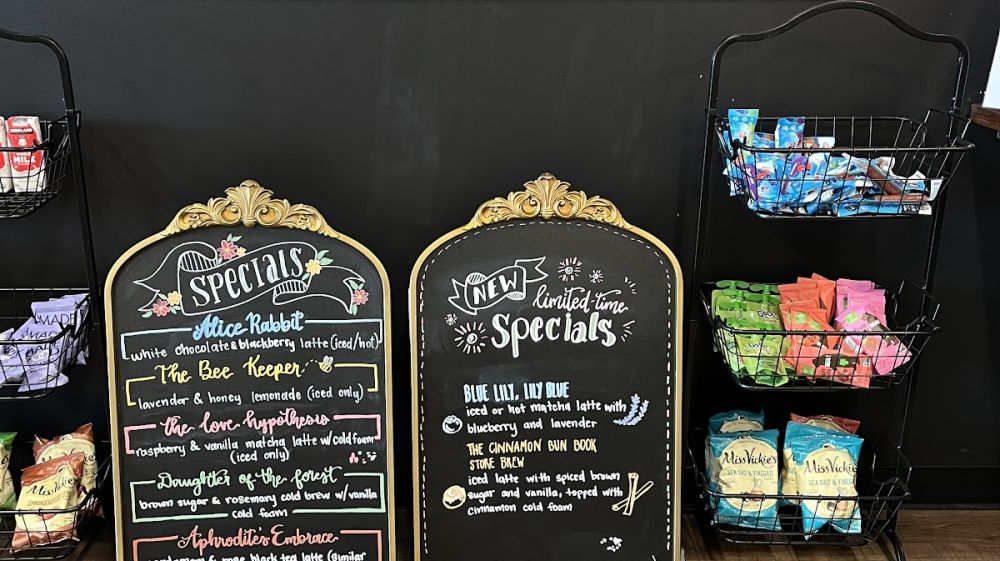 SPECIALS
Alice Rabbit
white chocolate & blackberry latte (iced/hot)
The Bee Keeper
lavender & honey lemonade (iced only)
the love hypothesis
raspberry & vanilla matcha latte w/ cold foam
(iced only)
Daughter of the forest
brown sugar & rosemary cold brew w/ vanilla
cold foam
Aphrodite's Embrace
rose black tea latte (similar
NEW
limited-time
Specials
BLUE LILY, LILY BLUE
iced or hot matcha latte with
blueberry and lavender
THE CINNAMON BUN BOOK
STORE BREW
iced latte with spiced brown
sugar and vanilla, topped with
cinnamon cold foam
KIRKLAND
MILK
MADE
MADE
Miss Vickie's
Miss Vickie's
SEA SALT & VINEGAR
Miss Vickie's
SEA SALT & VINEGAR